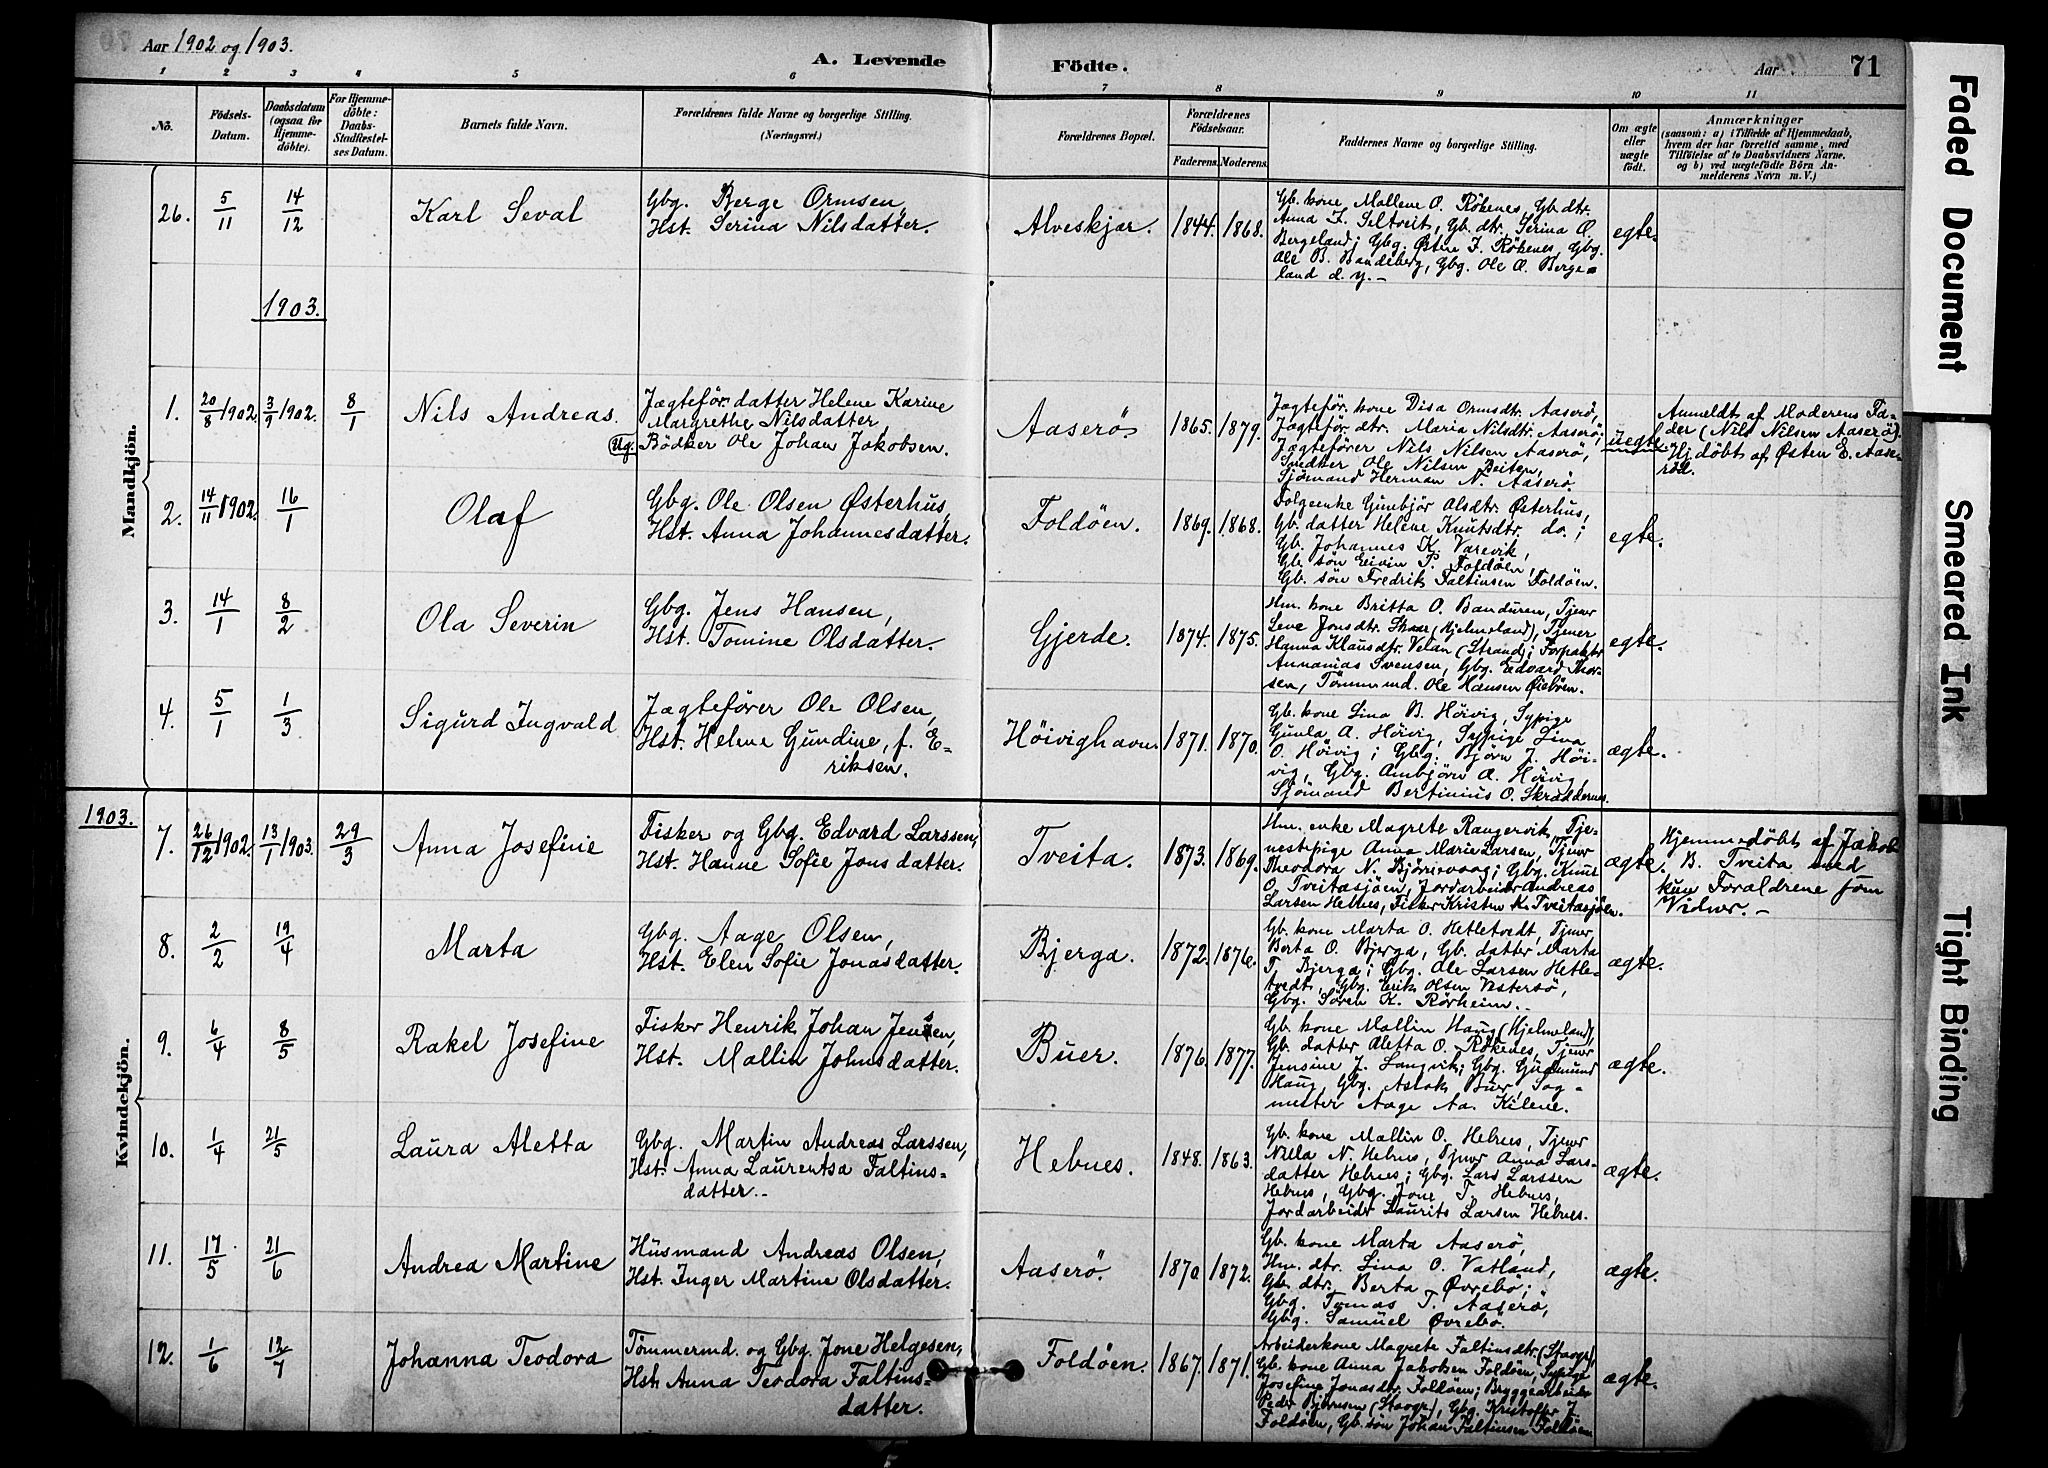 Aar 1902 og 1903.
A. Levende Födte.
Aar
71
1 2 3 4 5 6 7 8 9 10 11
No.
Födsels-Datum.
Daabsdatum (ogsaa for Hjemme-döbte).
For Hjemme-döbte: Daabs-Stadfæstel-ses Datum.
Barnets fulde Navn.
Forældrenes fulde Navne og borgerlige Stilling.
(Næringsvei.)
Forældrenes Bopæl.
Forældrenes Födselsaar.
Faderens. Moderens.
Faddernes Navne og borgerlige Stilling.
Om ægte eller uægte födt.
Anmærkninger
(saasom: a) i Tilfælde af Hjemmedaab,
hvem der har forrettet samme, med
Tilföielse af to Daabsvidners Navne.
og b) ved uægtefödte Börn An-
melderens Navn m. V.)
Mandkjön.
26. 5/11 14/12 Karl Seval
Gbg. Berge Ormsen,
Hst. Serina Nilsdatter.
Alveskjær. 1844. 1868.
Gb. kone Mallene O. Rökenes, Gb. dtr.
Anna I. Seltveit, Gb. dtr. Serina O.
Bergeland; Gbg. Østen I. Rökenes, Gbg.
Ole B. Bandeberg, Gbg. Ole O. Berge=
land d. y. –
egte.
1903.
1. 20/8 1902. 3/9 1902. 8/1 Nils Andreas.
Jægtefør. datter Helene Karine
Margrethe Nilsdatter,
Ug. Bödker Ole Johan Jakobsen.
Aaserö. 1865. 1879.
Jægtefør. kone Disa Ormsdtr. Aaserö,
Jægtefør. dtr. Maria Nilsdtr. Aaserö;
Jægtefører Nils Nilsen Aaserö,
Snedker Ole Nilsen Beiten,
Sjömand Herman N. Aaserö.
uegte.
Anmeldt af Moderens Fa-
der (Nils Nilsen Aaserö).
Hj. döbt af Østen E. Aase-
röd.
2. 14/11 1902. 16/1 Olaf
Gbg. Ole Olsen Østerhus,
Hst. Anna Johannesdatter.
Foldöen. 1869. 1868.
Folgeenke Gunbjør Alsdtr. Østerhus,
Gb. datter Helene Knutsdtr. do.;
Gb. Johannes K. Varevik,
Gb. sön Eivin P. Foldöen,
Gb. sön Fredrik Faltinsen Foldöen.
egte.
3. 14/1 8/2 Ola Severin
Gbg. Jens Hansen,
Hst. Tomine Olsdatter.
Gjerde. 1874. 1875.
Hm. kone Britta O. Banduren, Tjener
Seve Jonsdtr. Skaar (Hjelmeland), Tjener
Hanna Klausdtr. Velan (Strand); Forpakter
Annanias Svensen, Gbg. Edvard Thor-
sen, Tömmermd. Ole Hansen Øieböen.
egte.
4. 5/1 1/3 Sigurd Ingvald
Jægtefører Ole Olsen,
Hst. Helene Gundine, f. E-
riksen.
Höivighavn 1871. 1870.
Gb. kone Lina B. Höivig, Sypige
Gunla A. Höivig, Sypige Lina
O. Höivig; Gbg. Björn J. Höi-
vig, Gbg. Ambjörn A. Höivig,
Sjömand Bertinius O. Skraddernes.
ægte.
1903.
Kvindekjön.
7. 26/12 1902. 13/1 1903. 29/3 Anna Josefine
Fisker og Gbg. Edvard Larssen,
Hst. Hanne Sofie Jonsdatter.
Tveita. 1873. 1869.
Hm. enke Magrete Rangervik, Tje-
nestepige Anna Marie Larsen, Tjener
Theodora N. Björnevaag; Gbg. Knut
O. Tveitasjöen, Jordarbeider Andreas
Larsen Hebnes, Fisker Kristen K. Tveitasjöen.
ægte.
Hjemmedöbt af Jakob
B. Tveita med
kun Forældrene som
Vidner. –
8. 2/2 19/4 Marta
Gbg. Aage Olsen,
Hst. Elen Sofie Jonasdatter.
Bjerga. 1872. 1876.
Gb. kone Marta O. Hetletvedt, Tjener
Berta O. Bjerga, Gb. datter Marta
T. Bjerga; Gbg. Ole Larsen Hetle-
tvedt, Gbg. Erik Olsen Vestersö,
Gbg. Sören K. Rörheim.
ægte.
9. 6/4 8/5 Rakel Josefine
Fisker Henrik Johan Jensen,
Hst. Mallin Johnsdatter.
Buer. 1876. 1877.
Gb. kone Mallin Haug (Hjelmeland),
Gb. datter Aletta O. Rökenes, Tjener
Jensine J. Langvik; Gbg. Gudmund
Haug, Gbg. Aslak Buer, Sog-
nester Aage Aa. Kilene.
ægte.
10. 1/4 21/5 Laura Aletta
Gbg. Martin Andreas Larssen,
Hst. Anna Laurentsa Faltins=
datter.
Hebnes. 1848. 1863.
Gb. kone Mallin O. Hebnes, Tjener
Nilla N. Hebnes, Tjener Anna Lars-
datter Hebnes; Gbg. Lars Larssen
Hebnes, Gbg. Jone T. Hebnes,
Jordarbeider Laurits Larsen Hebnes.
ægte.
11. 17/5 21/6 Andrea Martine
Husmand Andreas Olsen,
Hst. Inger Martine Olsdatter.
Aaserö. 1870. 1872.
Gb. kone Marta Aaserö,
Hm. dtr. Lina O. Vatland,
Gb. dtr. Berta Øvrebö;
Gbg. Tomas T. Aaserö,
Gbg. Samuel Øvrebö.
ægte.
12. 1/6 12/7 Johanna Teodora
Tömmermd. og Gbg. Jone Helgesen,
Hst. Anna Teodora Faltins=
datter.
Foldöen. 1867. 1871.
Arbeiderkone Magrete Faltinsdtr. (Staogr),
Gb. kone Anna Jakobsen Foldöen, Sypige
Josefine Jonasdtr. Foldöen; Bryggearbeider
Peder Björnsen (Staogr), Gbg. Kristoffer J.
Foldöen, Gb. sön Johan Faltinsen Foldöen
ægte.
Faded Document
Smeared Ink
Tight Binding